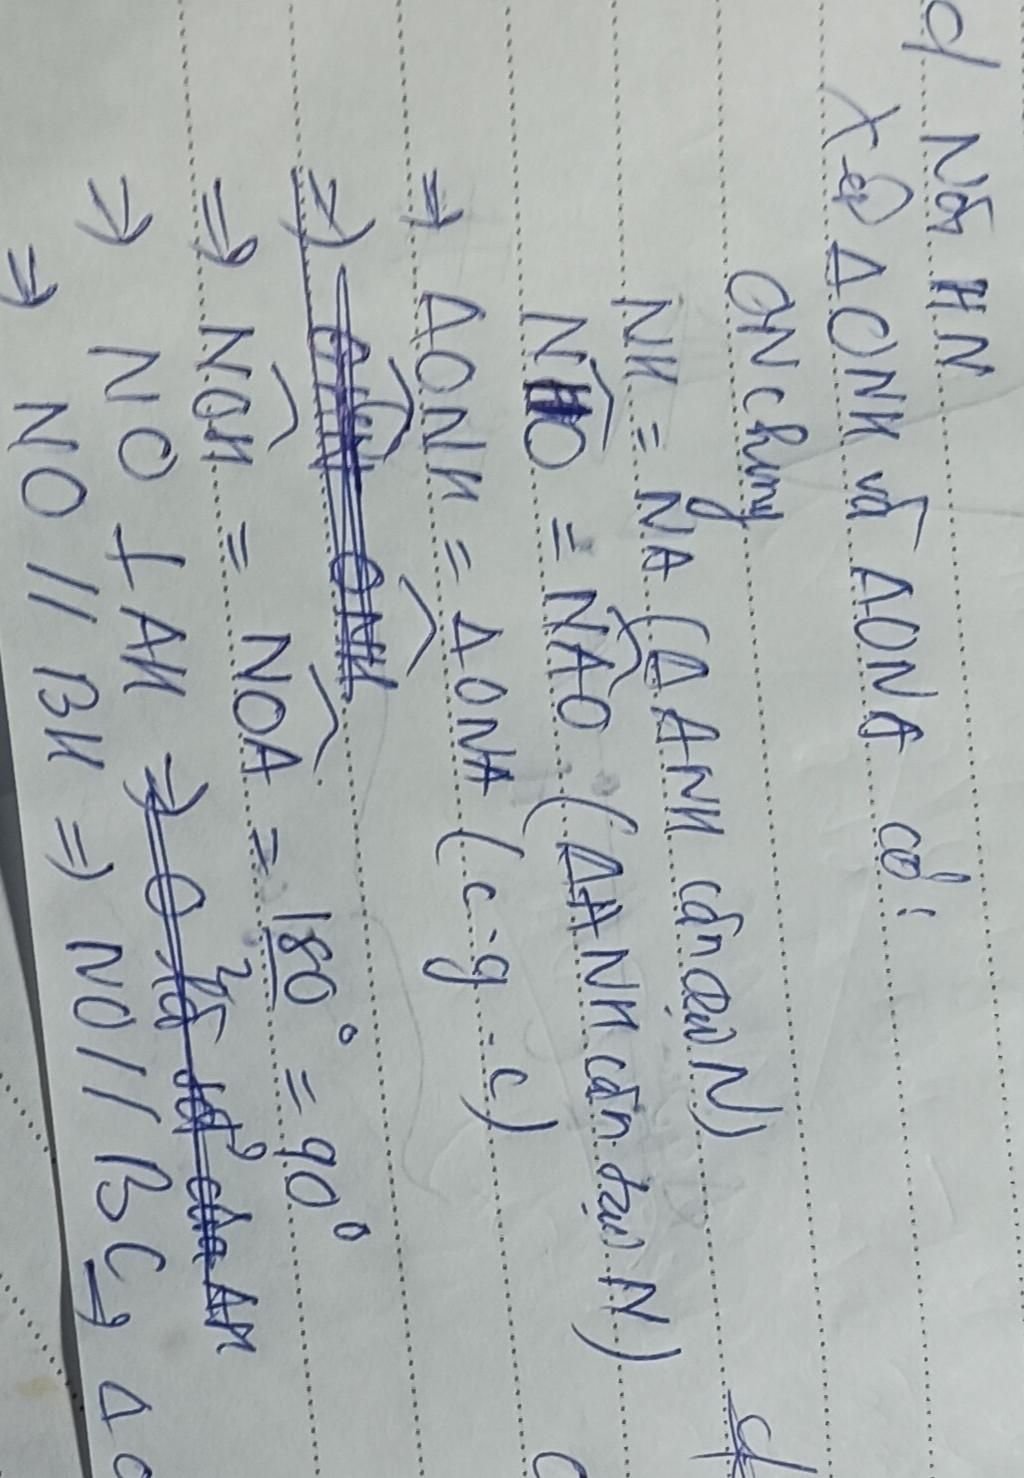 d) Nối HN
Xét ΔONH và ΔONA có:
ON chung
NH = NA (ΔANH cân tại N)
NHO = NAO (ΔANH cân tại N)
⇒ ΔONH = ΔONA (c-g-c)
⇒ NOH = NOA = 180°/2 = 90°
⇒ NO ⊥ AH
⇒ NO // BH ⇒ NO // BC